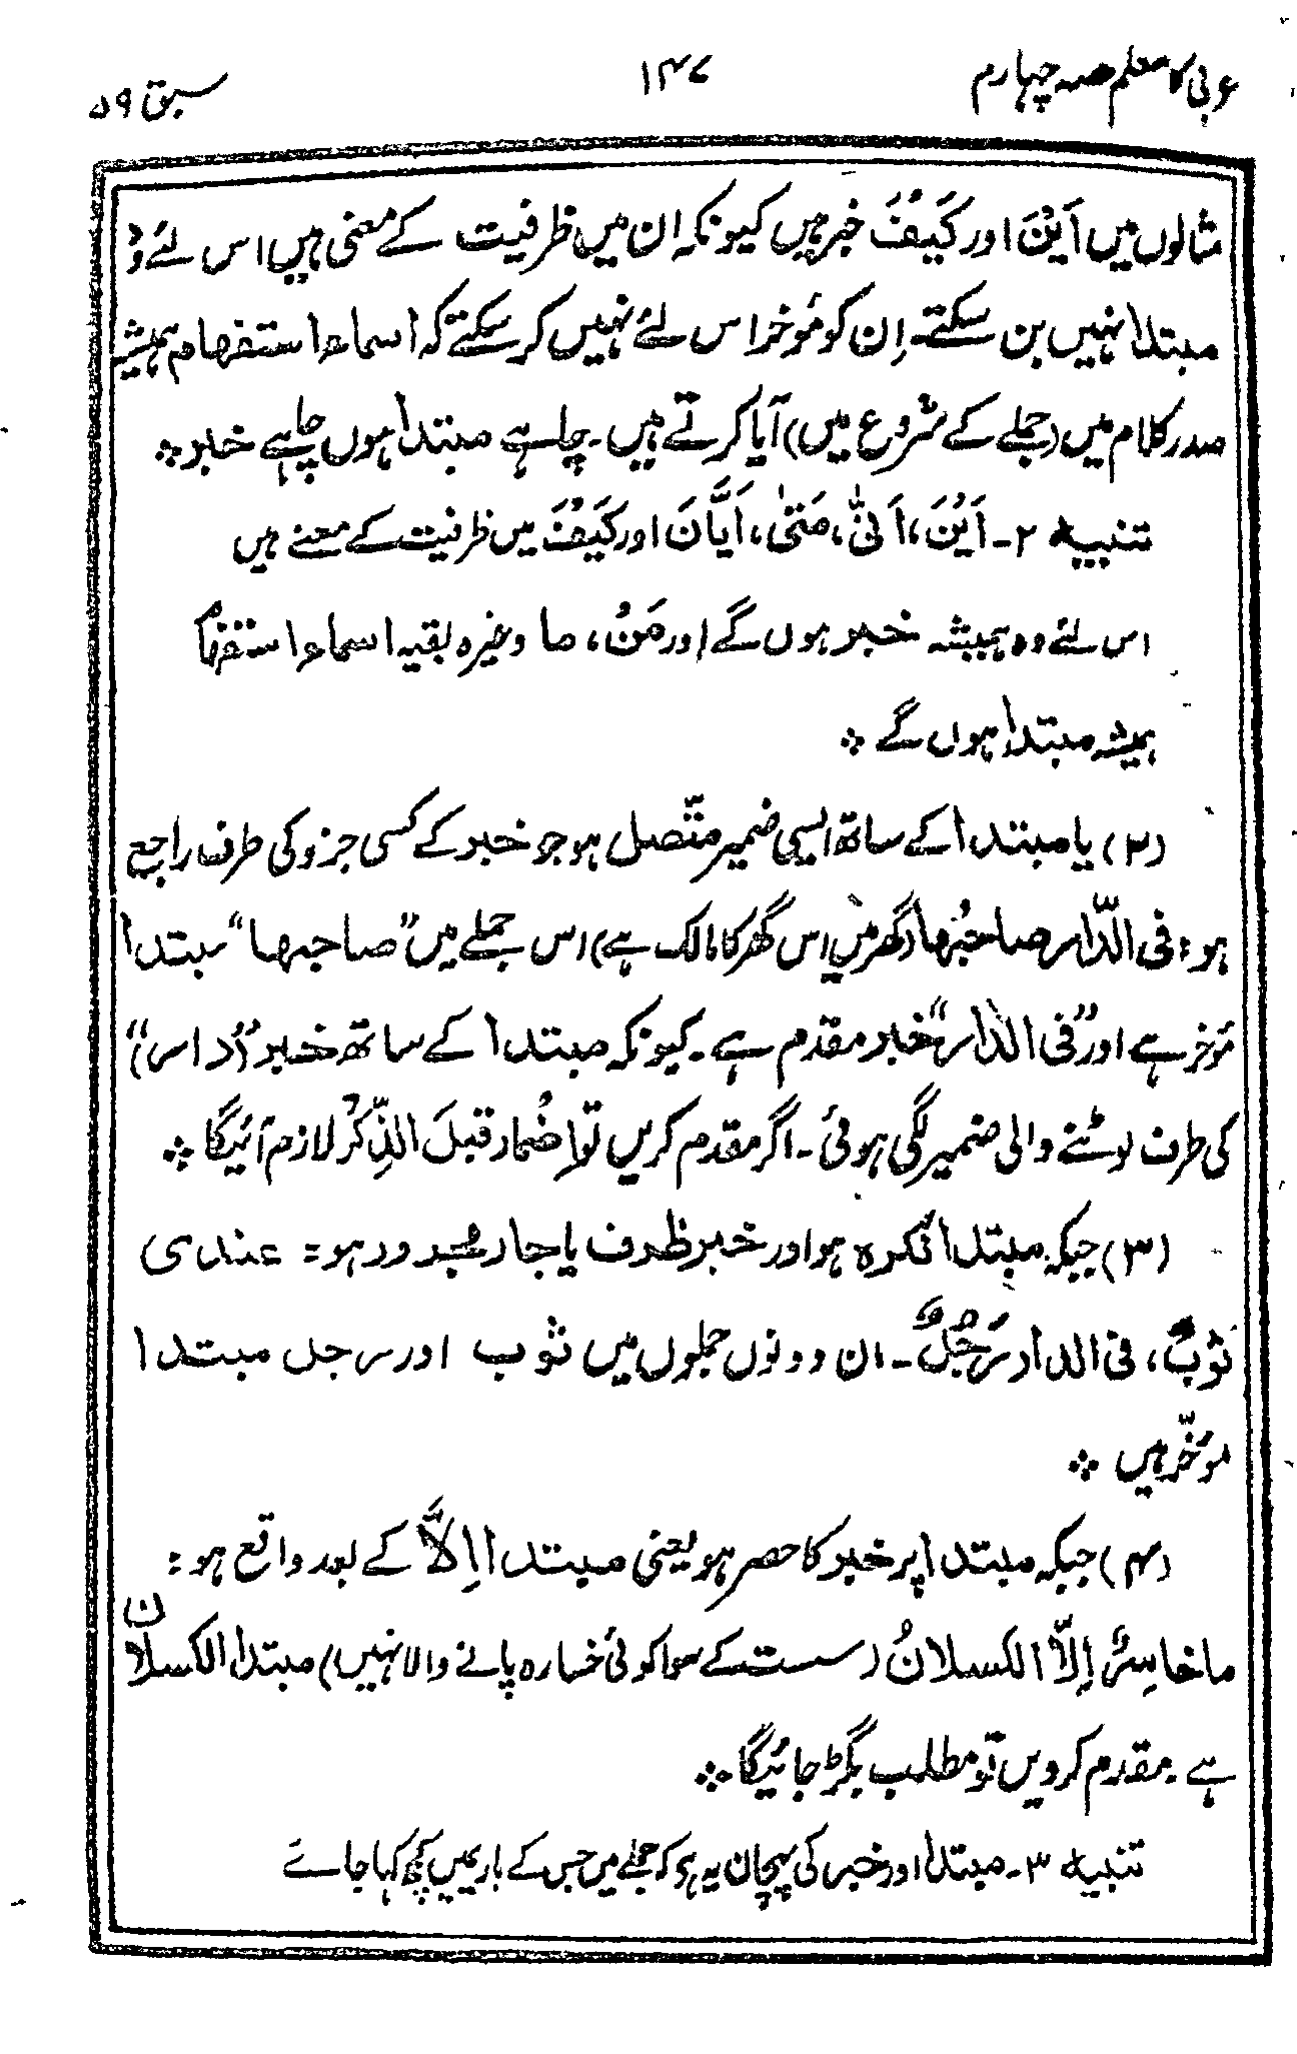 عربی کا معلم حصہ چہارم ۱۴۷ سبق ۵۹
مثالوں میں اَیْنَ اور کَیْفَ خبر ہیں کیونکہ ان میں ظرفیت کے معنی ہیں اس لئے وُہ
مبتدا نہیں بن سکتے۔ اِن کو مُوخر اس لئے نہیں کر سکتے کہ اسماء استفہام ہمیشہ
صدر کلام میں (جملے کے شروع میں) آیا کرتے ہیں۔ چاہے مبتدا ہوں چاہے خبر ❖
تنبیہ ۲۔ اَیْنَ، اَنّٰی، مَتٰی، اَیَّانَ اور کَیْفَ میں ظرفیت کے معنے ہیں
اس لئے وہ ہمیشہ خبر ہوں گے اور مَنْ، ما وغیرہ بقیہ اسماء استفہام
ہمیشہ مبتدا ہوں گے ❖
(۲) یا مبتدا کے ساتھ ایسی ضمیر متّصل ہو جو خبر کے کسی جزو کی طرف راجع
ہو: فی الدّار صاحبُہا (گھر میں اس گھر کا مالک ہے) اس جملے میں "صاحبہا" مبتدا
مُوخر ہے اور "فی الدّار" خبر مقدم ہے۔ کیونکہ مبتدا کے ساتھ خبر ("دار")
کی طرف لوٹنے والی ضمیر لگی ہوئی۔ اگر مقدم کریں تو اِضْمار قبلَ الذِّکْر لازم آئیگا ❖
(۳) جبکہ مبتدا نکرہ ہو اور خبر ظرف یا جار مجرور ہو: عندی
ثوبٌ، فی الدار رَجُلٌ۔ ان دونوں جملوں میں ثوب اور رجل مبتدا
مُوخّر ہیں ❖
(۴) جبکہ مبتدا پر خبر کا حصر ہو یعنی مبتدا اِلَّا کے بعد واقع ہو:
ما خاسِرٌ اِلّا الکسلانُ (سست کے سوا کوئی خسارہ پانے والا نہیں) مبتدا الکسلان
ہے۔ مقدم کردیں تو مطلب بگڑ جائیگا ❖
تنبیہ ۳۔ مبتدا اور خبر کی پہچان یہ ہو کہ جملے میں جس کے بارے میں کچھ کہا جائے